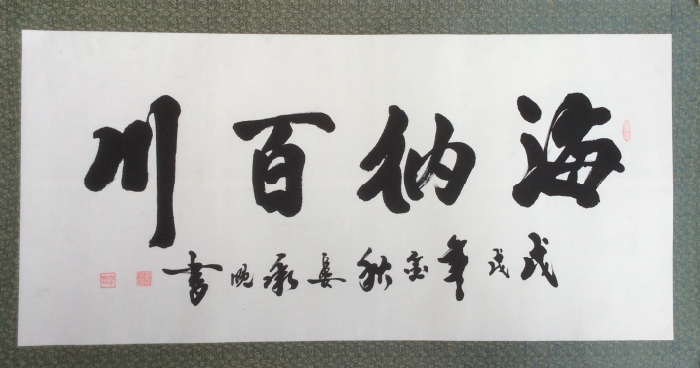 海纳百川
戊戌年金秋晏书